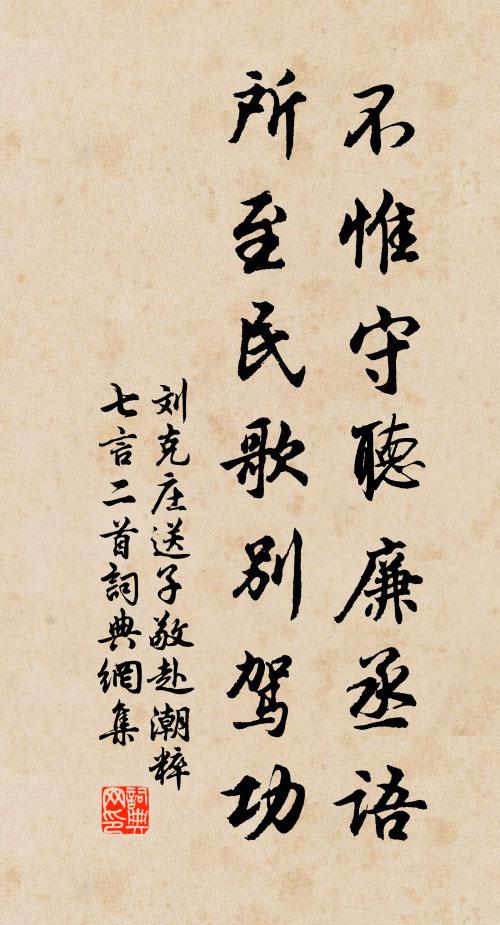 不惟守聽廉丞語
所至民歌別駕功
刘克庄送子敬赴潮粹
七言二首詞典網集
詞典
网印